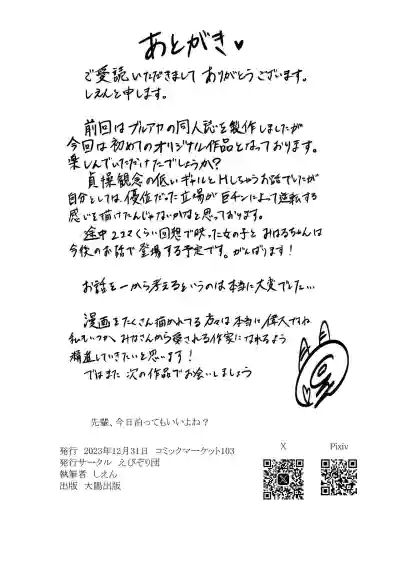 あとがき♥
ご愛読いただきまして ありがとうございます。
しえんと申します。
前回はブルアカの同人誌を製作しましたが
今回は初めてのオリジナル作品となっております。
楽しんでいただけたでしょうか?
貞操観念の低いギャルとHしちゃうお話でしたが
自分としては、優位だった立場が巨チンによって逆転する
感じを描けたんじゃないかなと思っております。
途中2コマくらい回想で映った女の子とみはるちゃんは
今後のお話で登場する予定です。がんばります!
お話を一から考えるというのは本当に大変でした…
漫画をたくさん描かれてる方々は本当に偉大ですね
私もいつか、みなさんから愛される作家になれるよう
精進していきたいと思います!
ではまた 次の作品でお会いしましょう
先輩、今日泊ってもいいよね?
発行 2023年12月31日 コミックマーケット103
発行サークル えびぞり団
執筆者 しえん
出版 大陽出版
X
Pixiv